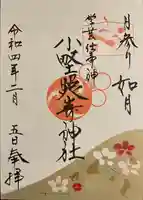 月参り 如月
学芸仕事神
小野照崎神社
令和四年二月
五日奉拝